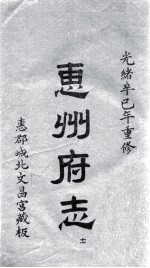 光緒辛巳年重修
惠州府志
士
惠郡城北文昌宮藏板